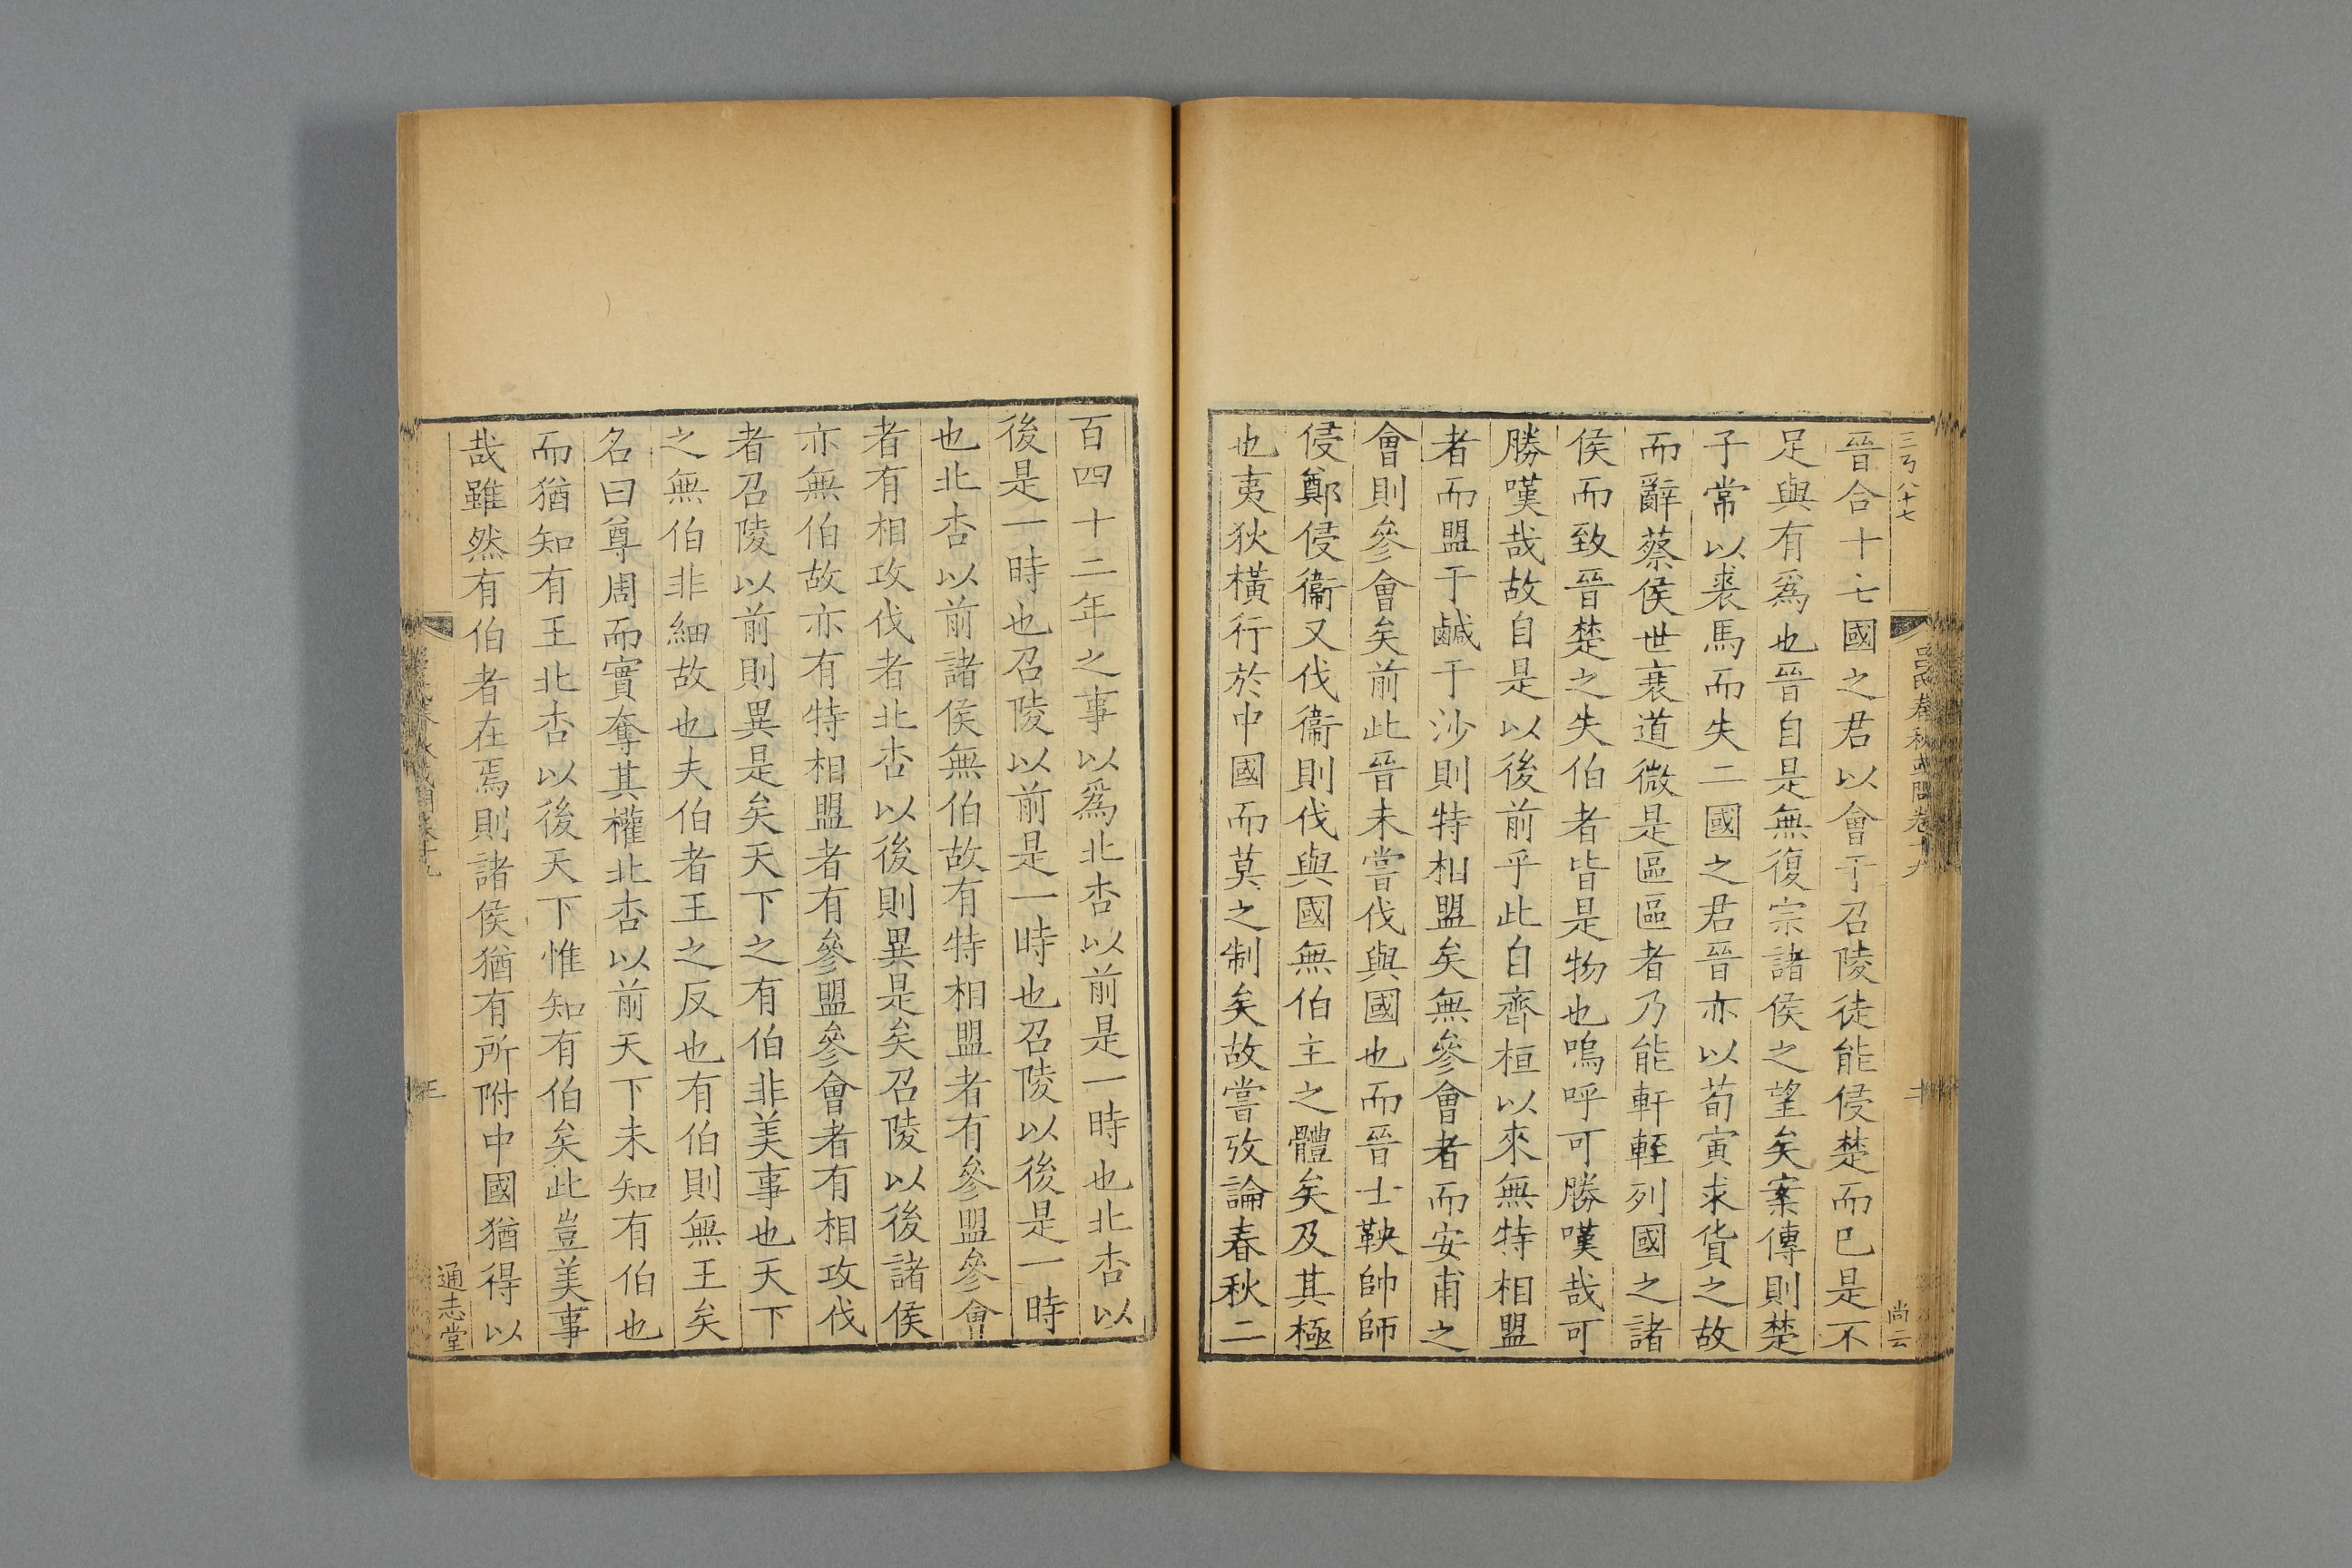 三 八十七
呂氏春秋或問卷十九
尚云
晉合十七國之君以會于召陵徒能侵楚而已是不
足與有爲也晉自是無復宗諸侯之望矣案傳則楚
子常以裘馬而失二國之君晉亦以荀寅求貨之故
而辭蔡侯世衰道微是區區者乃能軒輊列國之諸
侯而致晉楚之失伯者皆是物也嗚呼可勝嘆哉可
勝嘆哉故自是以後前乎此自齊桓以來無特相盟
者而盟于鹹于沙則特相盟矣無參會者而安甫之
會則參會矣前此晉未嘗伐與國也而晉士鞅帥師
侵鄭侵衞又伐衞則伐與國無伯主之體矣及其極
也夷狄橫行於中國而莫之制矣故嘗攷論春秋二
百四十二年之事以爲北杏以前是一時也北杏以
後是一時也召陵以前是一時也召陵以後是一時
也北杏以前諸侯無伯故有特相盟者有參盟參會
者有相攻伐者北杏以後則異是矣召陵以後諸侯
亦無伯故亦有特相盟者有參盟參會者有相攻伐
者召陵以前則異是矣天下之有伯非美事也天下
之無伯非細故也夫伯者王之反也有伯則無王矣
名曰尊周而實奪其權北杏以前天下未知有伯也
而猶知有王北杏以後天下惟知有伯矣此豈美事
哉雖然有伯者在焉則諸侯猶有所附中國猶得以
三
通志堂